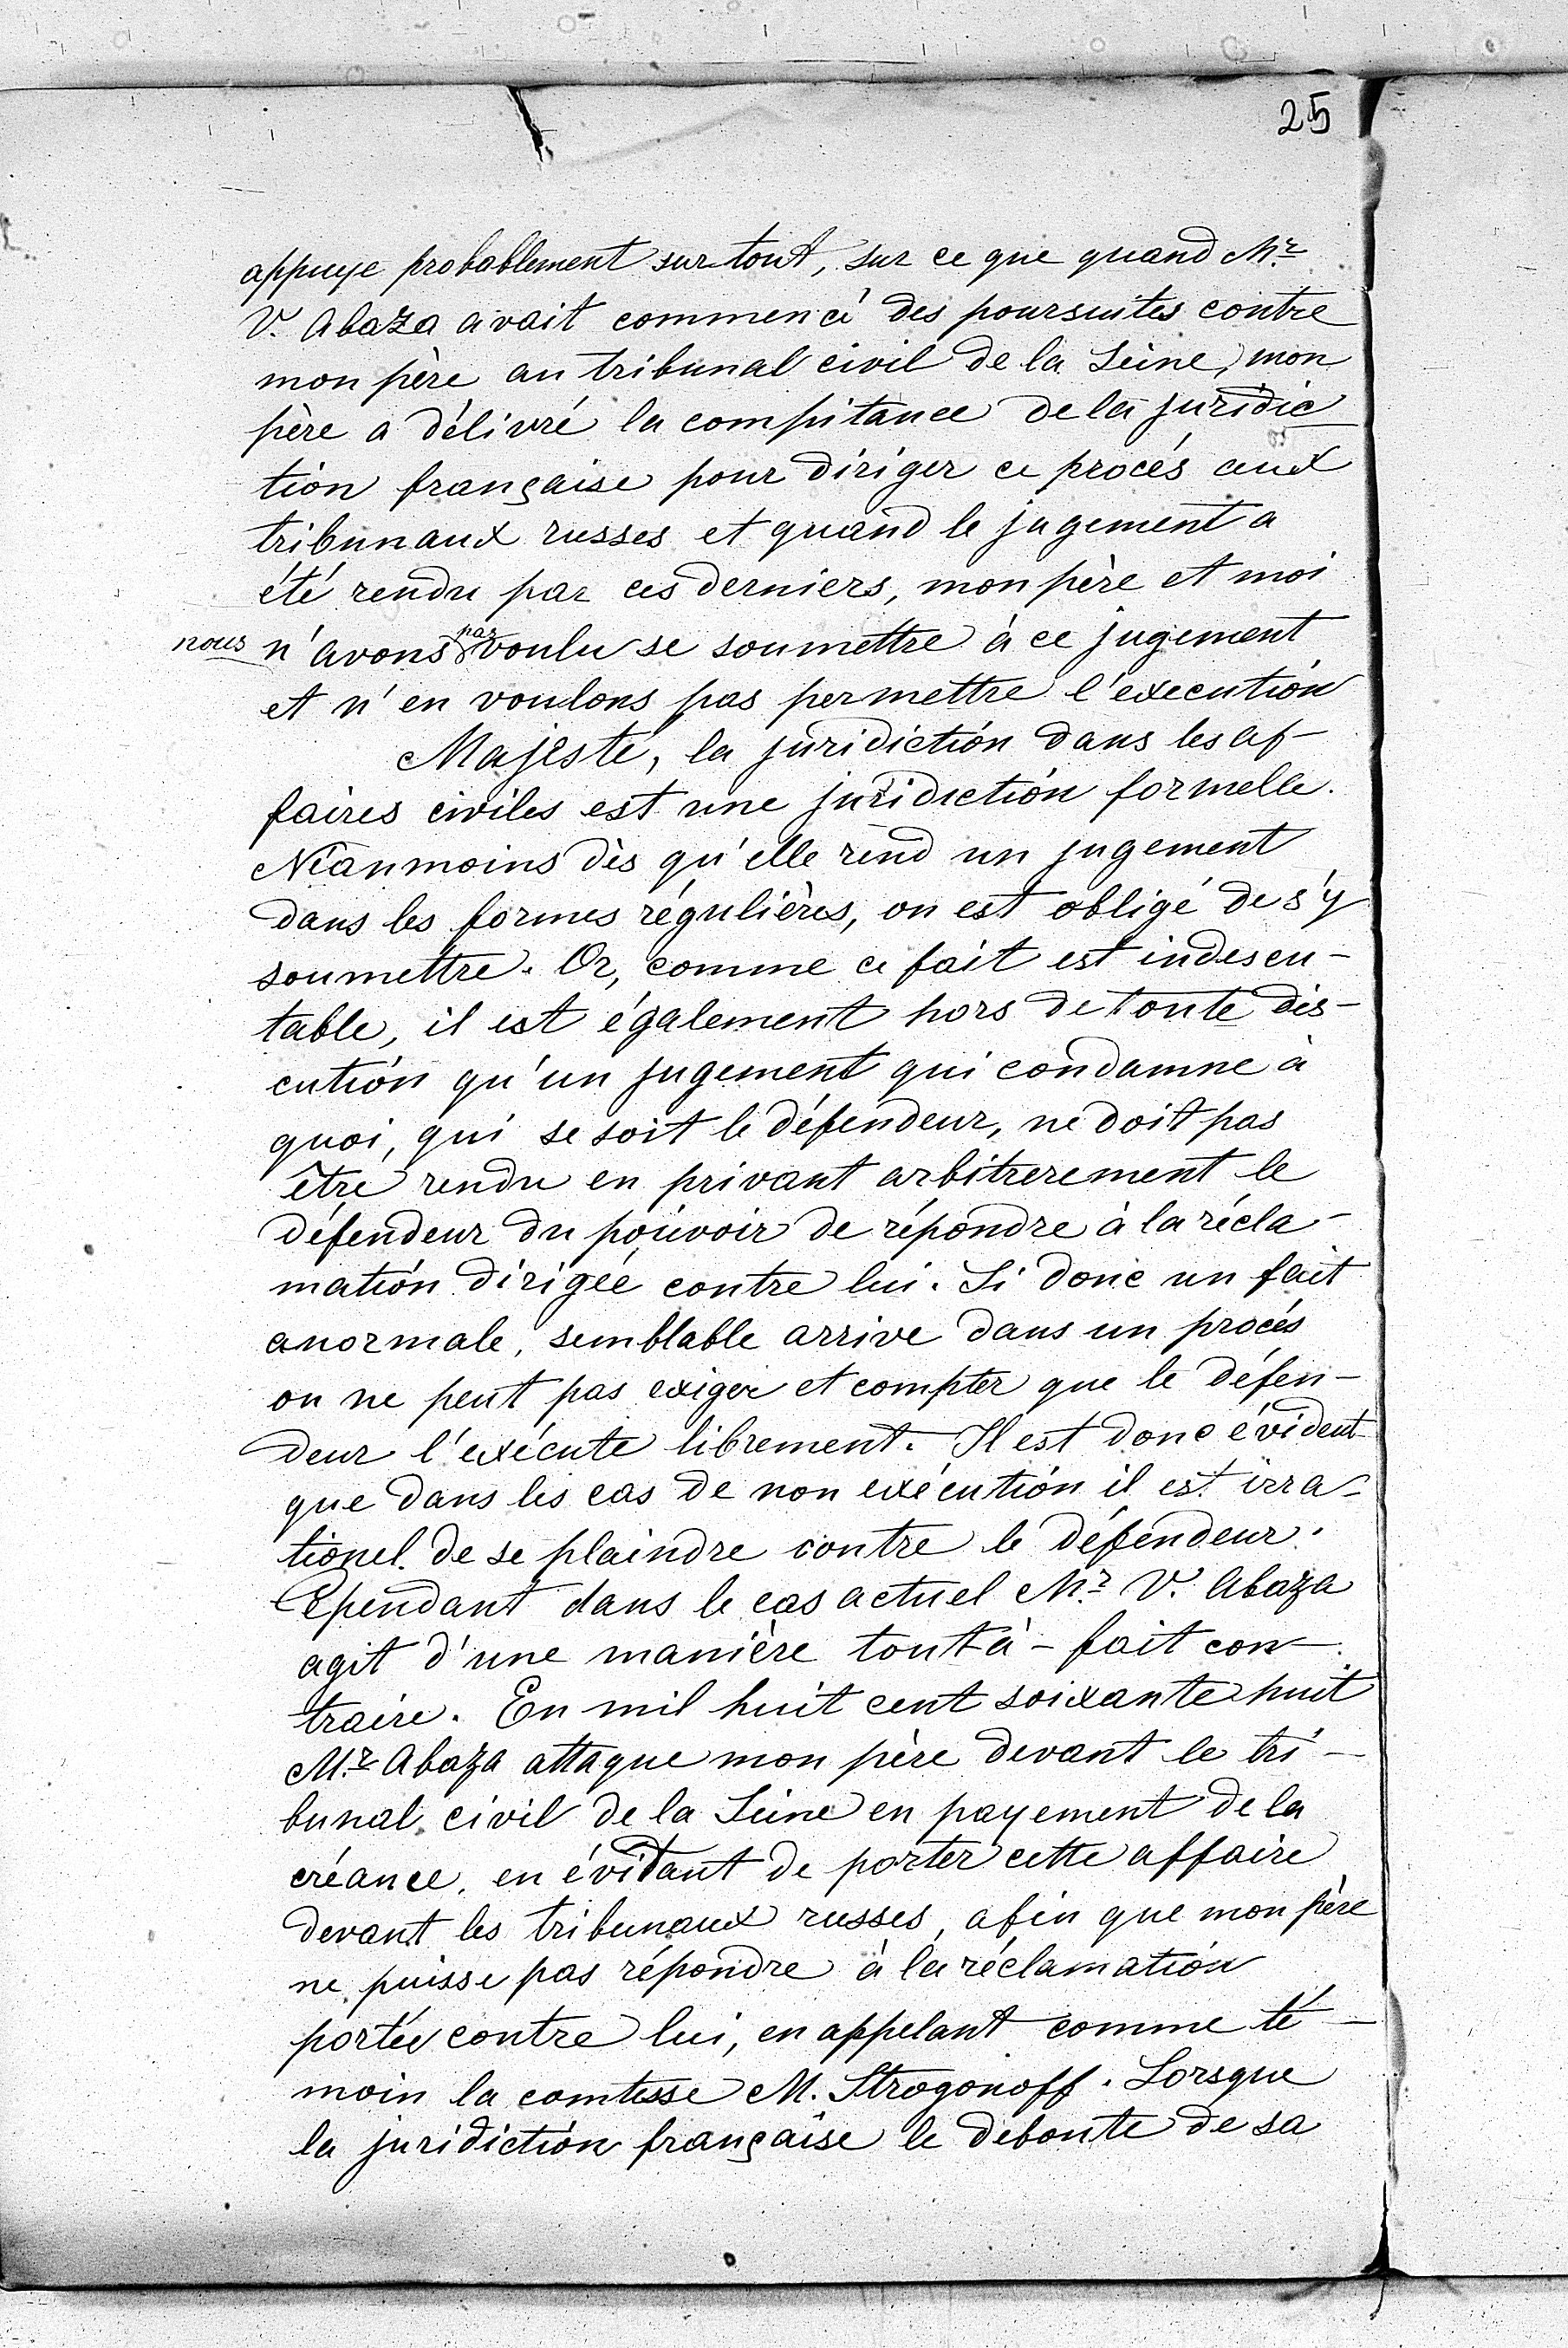 25
appuye probablement surtout, sur ce que quand Mr.
V. Abaza avait commencé des poursuites contre
mon père au tribunal civil de la Seine, mon
père a délivré la compitance de la juridic
tion française pour diriger ce procés aux
tribunaux russes et quand le jugement a
été rendu par ces derniers, mon père et moi
nous n'avons pas voulu se soumettre à ce jugement
et n'en voulons pas permettre l'execution
Majesté, la juridiction dans les af-
faires civiles est une juridiction formelle.
Néanmoins dès qu'elle rend un jugement
dans les formes régulières, on est obligé de s'y
soumettre. Or, comme ce fait est indescu-
table, il est également hors de toute dis-
cution qu'un jugement qui condamne à
quoi, qui se soit le défendeur, ne doit pas
être rendu en privant arbitrerement le
défendeur du pouvoir de répondre à la récla-
mation dirigée contre lui. Si donc un fait
anormale, semblable arrive dans un procés
on ne peut pas exiger et compter que le défen-
deur l'exécute librement. Il est donc évident
que dans les cas de non exécution il est irra-
tionel de se plaindre contre le défendeur.
Cependant dans le cas actuel Mr. V. Abaza
agit d'une manière tout-à-fait con-
traire. En mil huit cent soixante huit
Mr. Abaza attaque mon père devant le tri-
bunal civil de la Seine en payement de la
créance, en évitant de porter cette affaire
devant les tribunaux russes, afin que mon père
ne puisse pas répondre à la réclamation
portée contre lui, en appelant comme té-
moin la comtesse M. Strogonoff. Lorsque
la juridiction française le deboute de sa